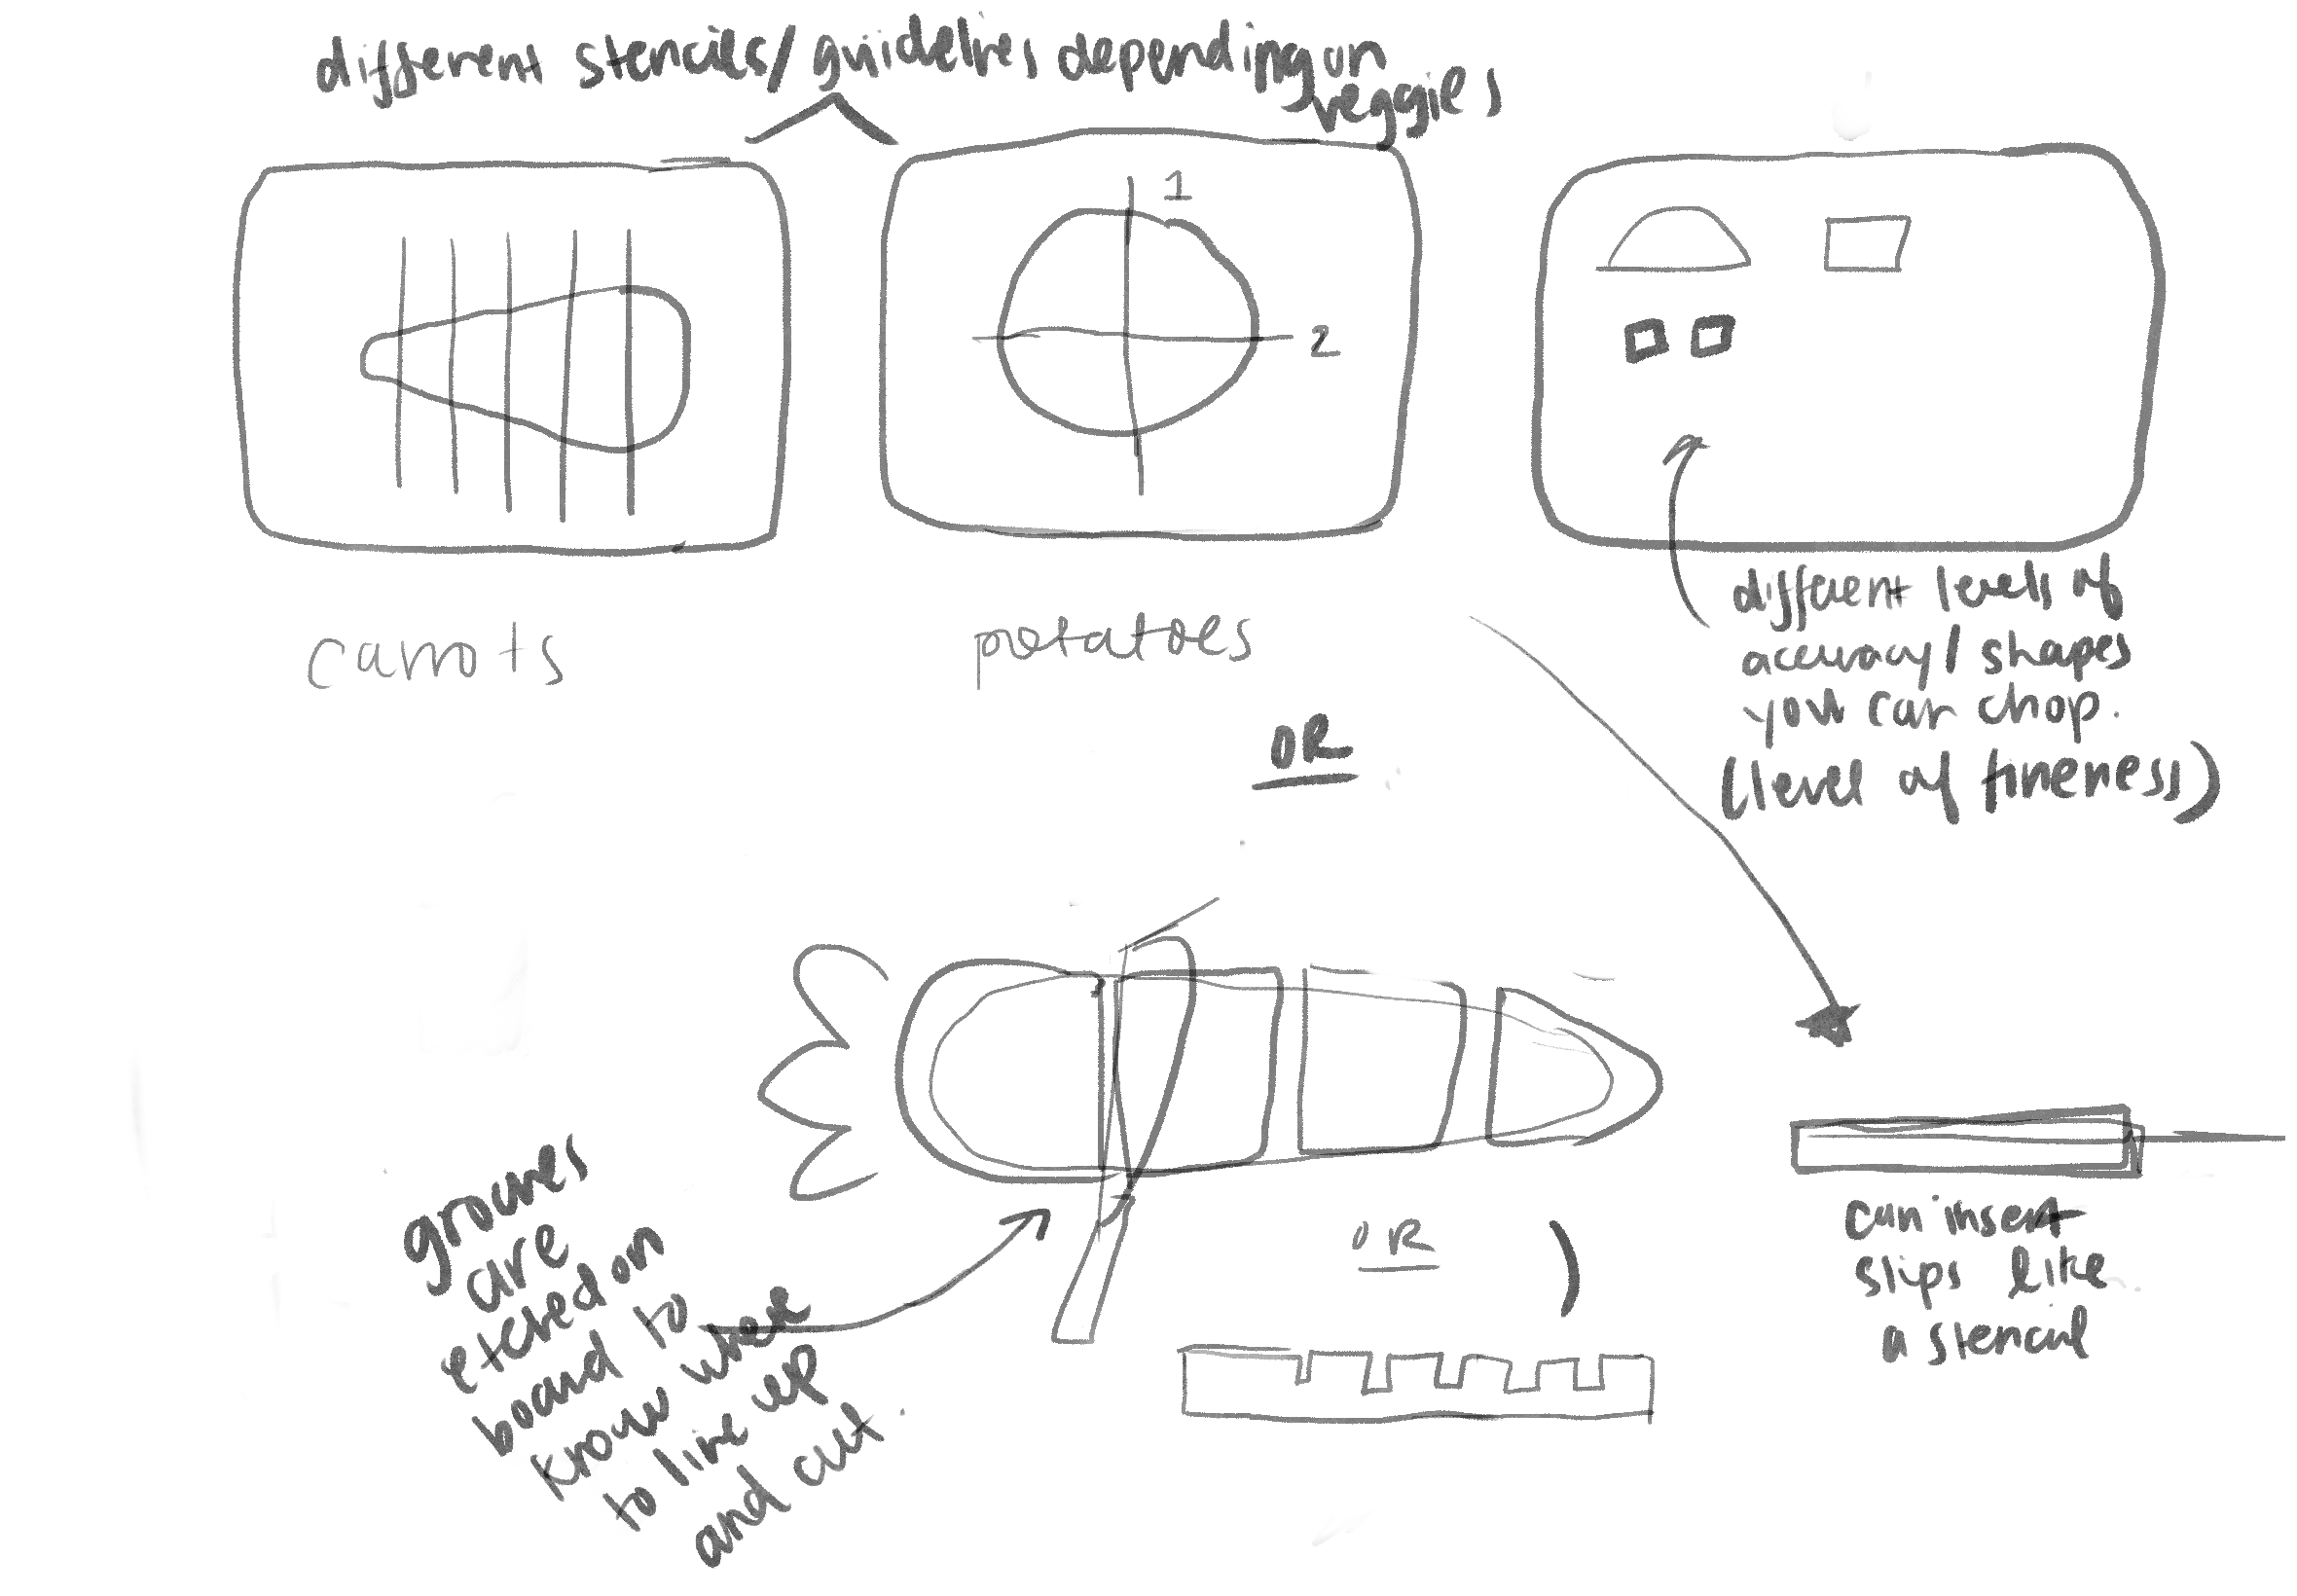 different stencils/guidelines depending on
veggies
1
2
carrots
potatoes
different levels of
accuracy/shapes
you can chop.
(level of fineness)
OR
grooves
are
etched on
board to
know where
to line up
and cut.
OR
can insert
slips like
a stencil